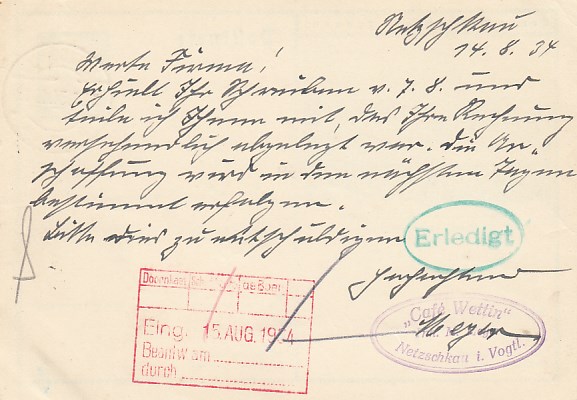 Netzschkau
14. 8. 34
Werte Firma!
Erhielt Ihr Schreiben v. 7. 8. und
teile ich Ihnen mit, das Ihre Rechnung
versehendlich abgelegt war. Die An-
schaffung wird in den nächsten Tagen
bestimmt erfolgen.
Bitte dies zu entschuldigen
Erledigt
Hochachtend
"Café Wettin"
Netzschkau i. Vogtl.
Eing. 15. AUG. 1934
Beantw. am
durch